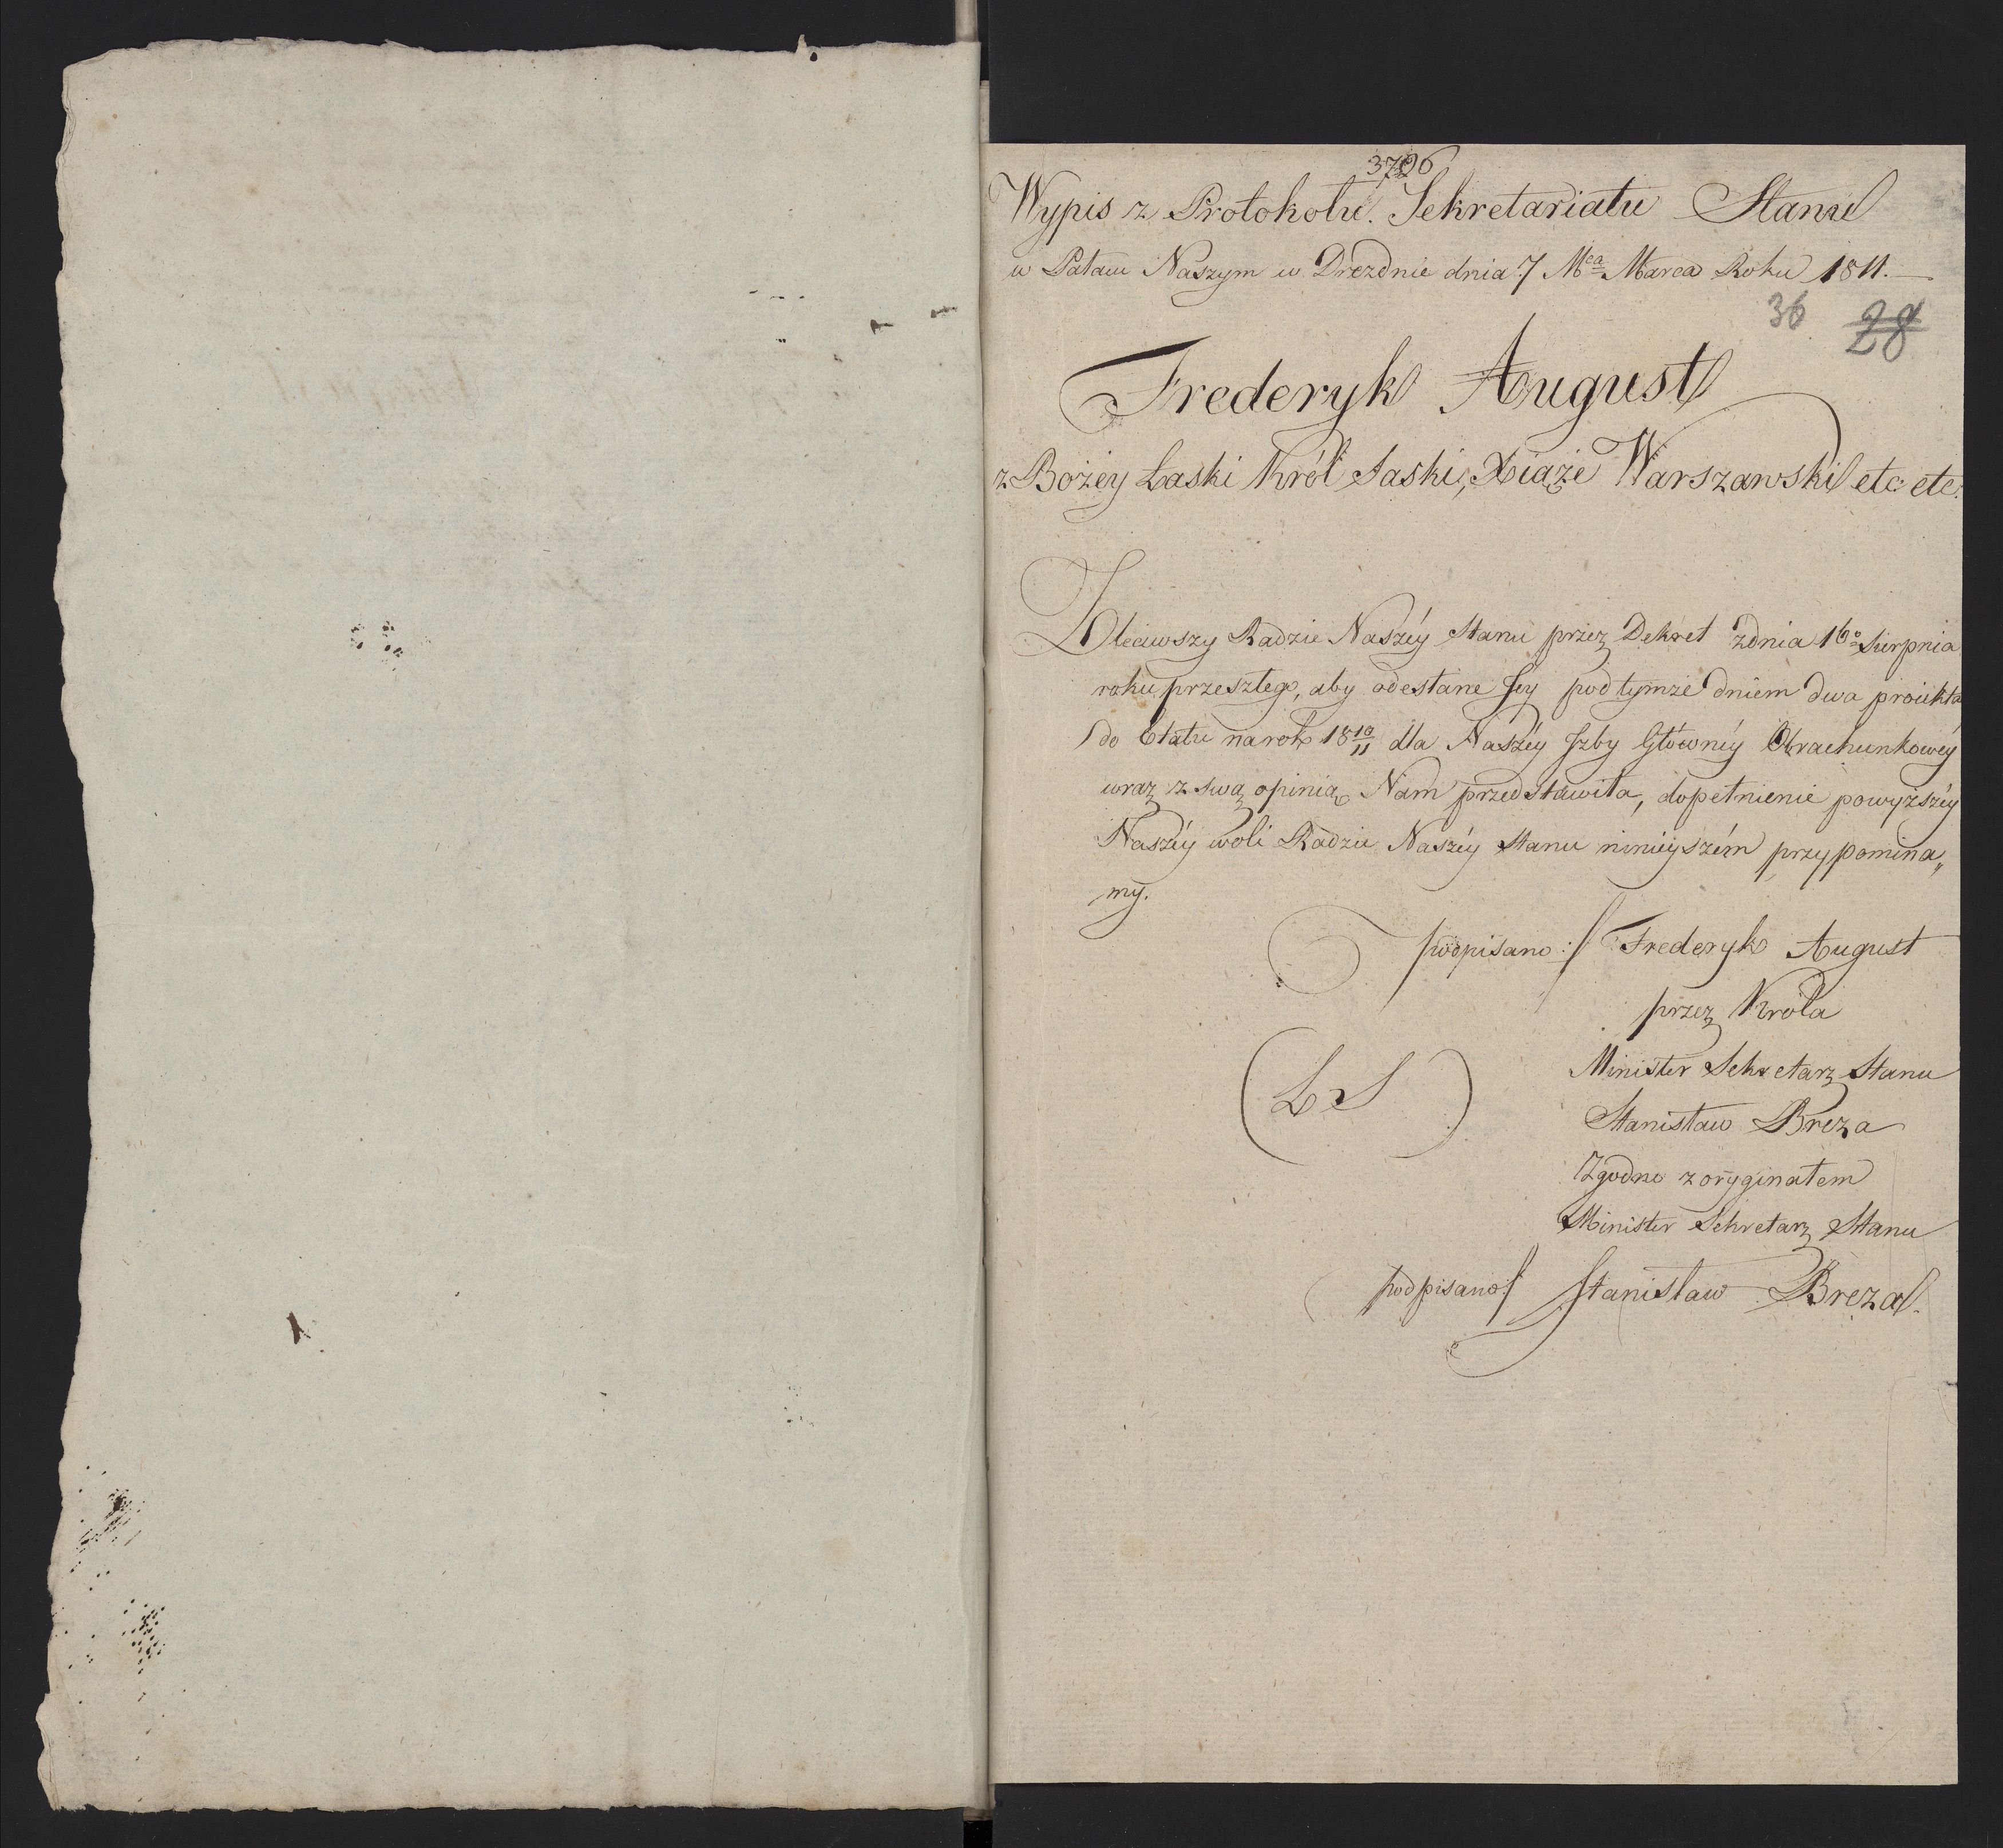 3796
Wypis z Protokołu Sekretariatu Stanu
w Pałacu Naszym w Dreźnie dnia 7 Mca Marca Roku 1811.
36 28
Frederyk August
z Bożey Łaski Król Saski, Xiąże Warszawski etc etc.
Zleciwszy Radzie Naszéy Stanu przez Dekret z dnia 16o Sierpnia
roku przeszłego, aby odesłane Jey pod tymże dniem dwa proiekta
do Etatu na rok 18 10/11 dla Naszéy Izby Głównéy Obrachunkowéy
wraz z swą opinią Nam przedstawiła, dopełnienie powyższéy
Naszéy woli Radzie Naszéy Stanu ninieyszém przypomina„
my.
podpisano:/ Frederyk August
przez Króla
Minister Sekretarz Stanu
(LS)
Stanisław Breza
Zgodno z oryginałem
Minister Sekretarz Stanu
podpisano:/ Stanisław Breza.